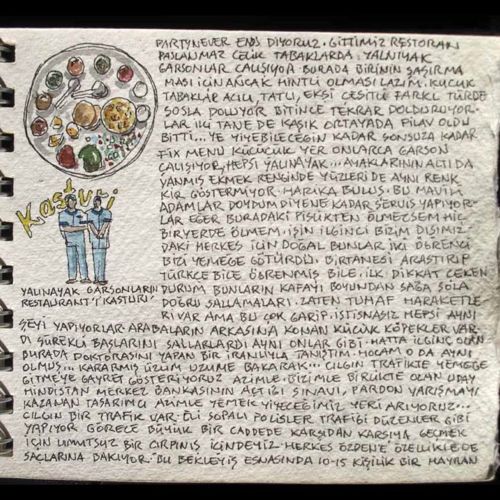 PARTYNEVER ENDS DIYORUZ. GITTIMIZ RESTORAN
PASLANMAZ CELIK TABAKLARDA. YALNIYAK
GARSONLAR CALISIYOR BURADA BIRININ SASIRMA
MASI ICIN ANCAK HINTLI OLMASI LAZIM. KUCUK
TABAKLAR ACILI, TATLI, EKSI CESITLI FARKLI TÜRDE
SOSLA DOLUYOR BITINCE TEKRAR DOLDURUYOR.
LAR. IKI TANE DE KASIK ORTAYADA PILAV OLDU
BITTI... YE YIYEBILECEGIN KADAR SONSUZA KADAR
FIX MENU KÜCÜCÜK YER ONLARCA GARSON
CALISIYOR, HEPSI YALINAYAK... AYAKLARININ ALTI DA
YANMIS EKMEK RENGINDE YÜZLERI DE AYNI RENK
KIR GÖSTERMIYOR. HARIKA BULUS. BU MAVILI
ADAMLAR DOYDUM DIYENE KADAR SERVIS YAPIYOR.
LAR EGER BURADAKI PISLIKTEN ÖLMEZSEM HIC
BIRYERDE ÖLMEM. ISIN ILGINCI BIZIM DISIMIZ-
DAKI HERKES ICIN DOGAL BUNLAR IKI ÖGRENCI
BIZI YEMEGE GÖTÜRDÜ. BIRTANESI ARASTIRIP
TÜRKCE BILE ÖGRENMIS BILE. ILK DIKKAT CEKEN
DURUM BUNLARIN KAFAYI BOYUNDAN SAGA SOLA
DOGRU SALLAMALARI. ZATEN TUHAF HAREKETLE
RI VAR AMA BU COK GARIP. ISTISNASIZ HEPSI AYNI
Kasturi
YALINAYAK GARSONLARIN
RESTAURANT'I KASTURI
SEYI YAPIYORLAR ARABALARIN ARKASINA KONAN KÜCÜK KÖPEKLER VAR
DI SÜREKLI BASLARINI SALLARLARDI AYNI ONLAR GIBI. HATTA ILGINC OLAN
BURADA DOKTORASINI YAPAN BIR IRANLIYLA TANISTIM. HOCAM O DA AYNI
OLMUS... KARARMIS ÜZÜM ÜZÜME BAKARAK... CILGIN TRAFIKTE YEMEGE
GITMEYE GAYRET GÖSTERIYORUZ AZIMLE. BIZIMLE BIRLIKTE OLAN UDAY
HINDISTAN MERKEZ BANKASININ ACTIGI SINAVI, PARDON YARISMAYI
KAZANAN TASARIMCI ADIMLE YEMEK YIYECEGIMIZ YERI ARIYORUZ...
CILGIN BIR TRAFIK VAR. ELI SOPALI POLISLER TRAFIGI DÜZENLER GIBI
YAPIYOR GÖRECE BÜYÜK BIR CADDEDE KARSIDAN KARSIYA GECMEK
ICIN UMUTSUZ BIR CIRPINIS ICINDEYIZ HERKES ÖZDENE ÖZELLIKLEDE
SACLARINA BAKIYOR. BU BEKLEYIS ESNASINDA 10-15 KISILIK BIR HAYRAN